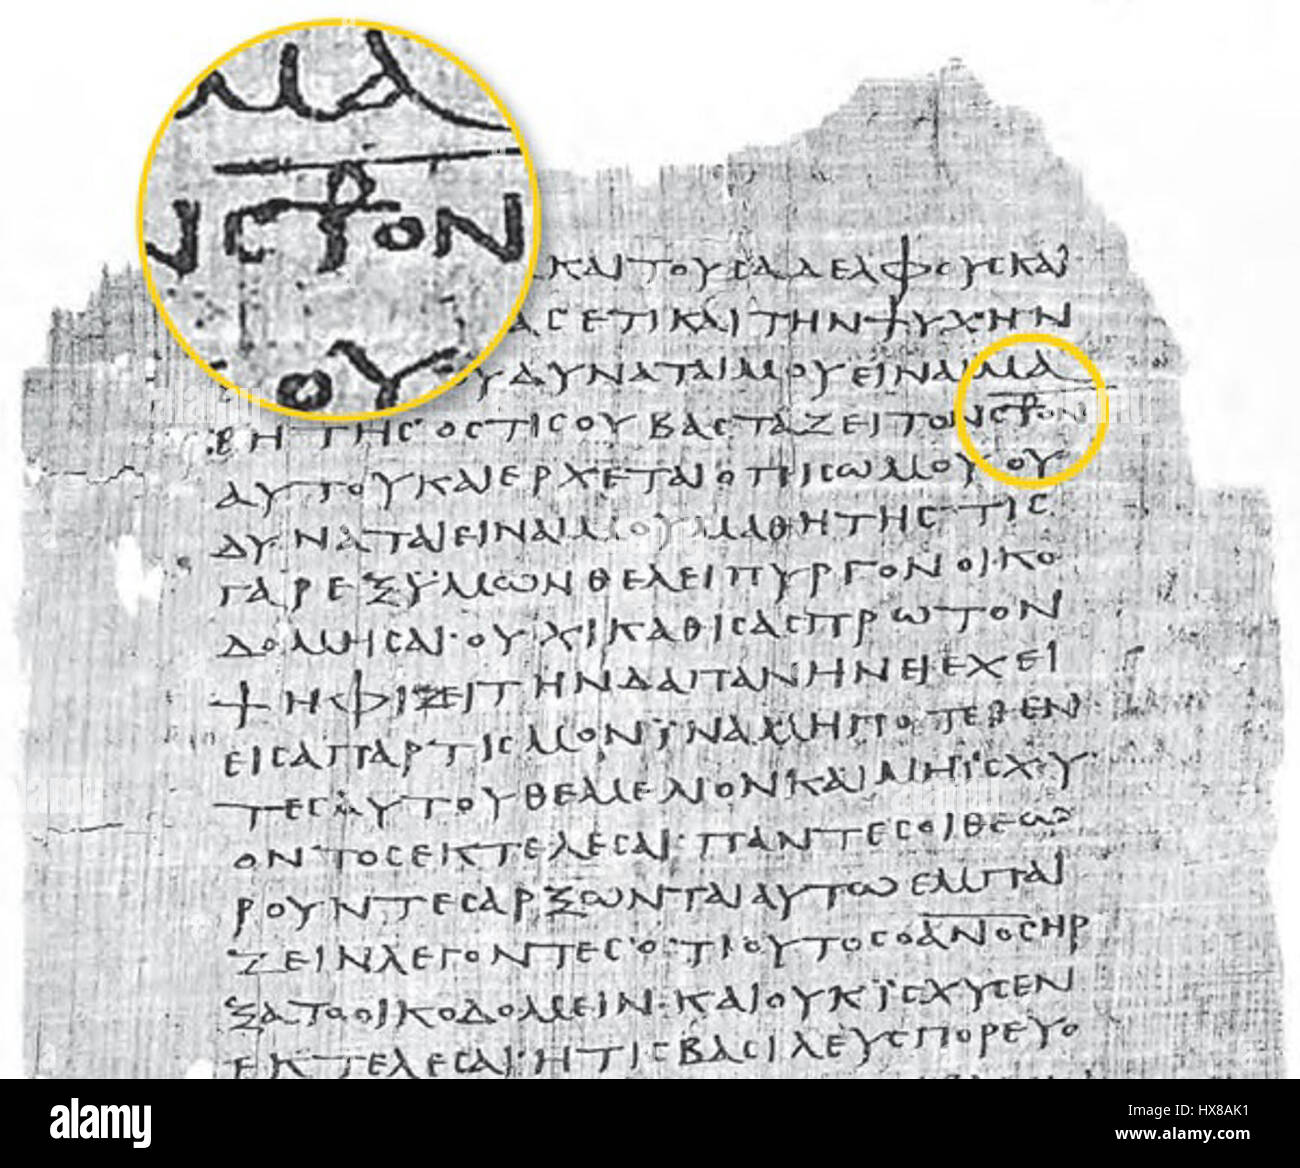 ΚΑΙ ΤΟΥΣ ΑΔΕΛΦΟΥΣ ΚΑΙ
ΑΣ ΕΤΙ ΚΑΙ ΤΗΝ ΨΥΧΗΝ
ΟΥ ΔΥΝΑΤΑΙ ΜΟΥ ΕΙΝΑΙ ΜΑ
ΘΗΤΗΣ· ΟΣΤΙΣ ΟΥ ΒΑΣΤΑΖΕΙ ΤΟΝ Σ⳨ΟΝ
ΑΥΤΟΥ ΚΑΙ ΕΡΧΕΤΑΙ ΟΠΙΣΩ ΜΟΥ ΟΥ
ΔΥΝΑΤΑΙ ΕΙΝΑΙ ΜΟΥ ΜΑΘΗΤΗΣ· ΤΙΣ
ΓΑΡ ΕΞ ΫΜΩΝ ΘΕΛΕΙ ΠΥΡΓΟΝ ΟΙΚΟ
ΔΟΜΗΣΑΙ· ΟΥΧΙ ΚΑΘΙΣΑΣ ΠΡΩΤΟΝ
ΨΗΦΙΖΕΙ ΤΗΝ ΔΑΠΑΝΗΝ ΕΙ ΕΧΕΙ
ΕΙΣ ΑΠΑΡΤΙΣΜΟΝ ΪΝΑ ΜΗΠΟΤΕ ΘΕΝ
ΤΕΣ ΑΥΤΟΥ ΘΕΜΕΛΙΟΝ ΚΑΙ ΜΗ ΪΣΧΥ
ΟΝΤΟΣ ΕΚΤΕΛΕΣΑΙ· ΠΑΝΤΕΣ ΟΙ ΘΕΩ
ΡΟΥΝΤΕΣ ΑΡΞΩΝΤΑΙ ΑΥΤΩ ΕΜΠΑΙ
ΖΕΙΝ ΛΕΓΟΝΤΕΣ ὉΤΙ ΟΥΤΟΣ Ο ΑΝΟΣ ΗΡ
ΞΑΤΟ ΟΙΚΟΔΟΜΕΙΝ· ΚΑΙ ΟΥΚ ΪΣΧΥΣΕΝ
ΕΚΤΕΛΕΣΑΙ· Η ΤΙΣ ΒΑΣΙΛΕΥΣ ΠΟΡΕΥΟ
ΜΑ
Ν Σ⳨ΟΝ
ΟΥ
alamy
HX8AK1
www.alamy.com